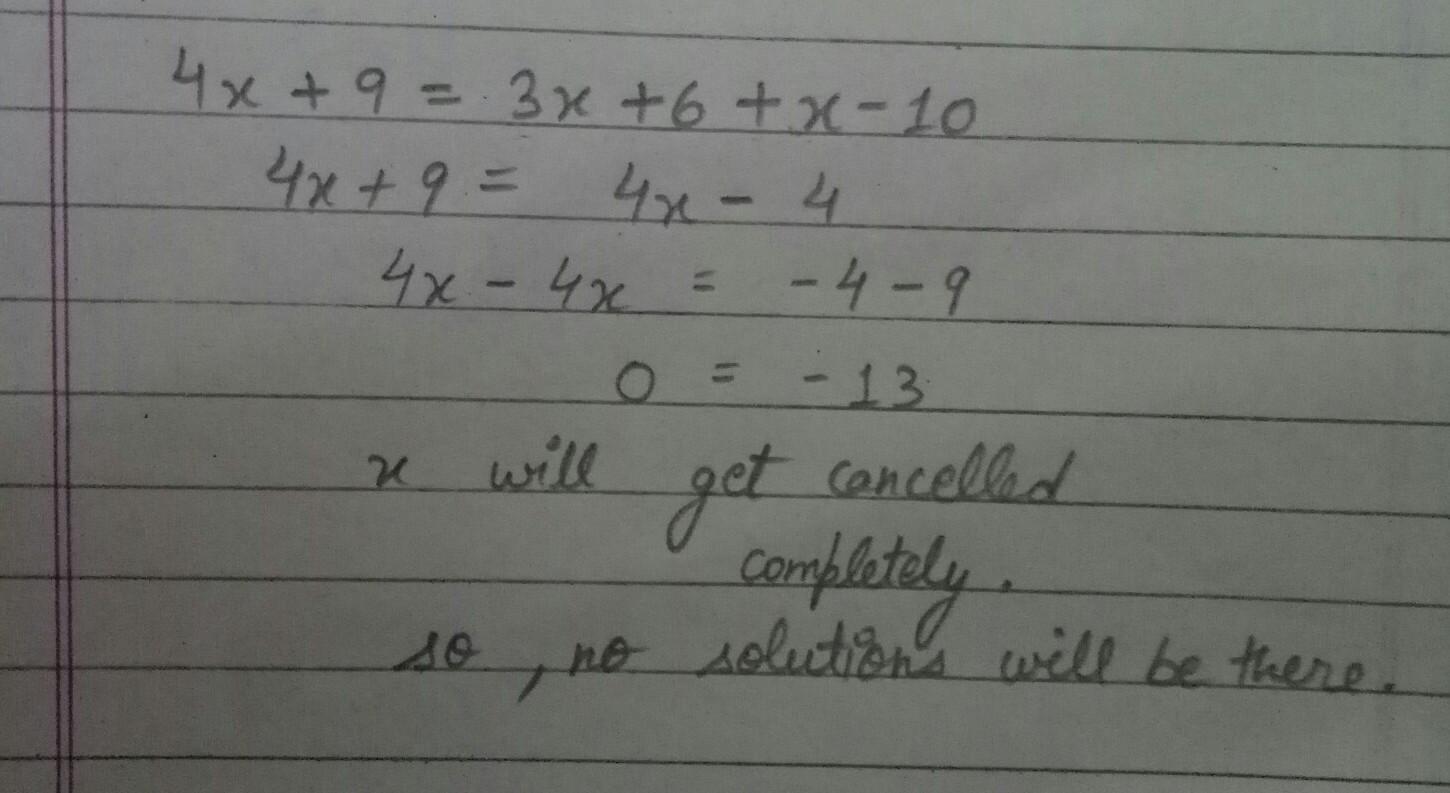 4x + 9 = 3x + 6 + x - 10
4x + 9 = 4x - 4
4x - 4x = -4 - 9
0 = -13
x will get cancelled
completely.
so, no solutions will be there.